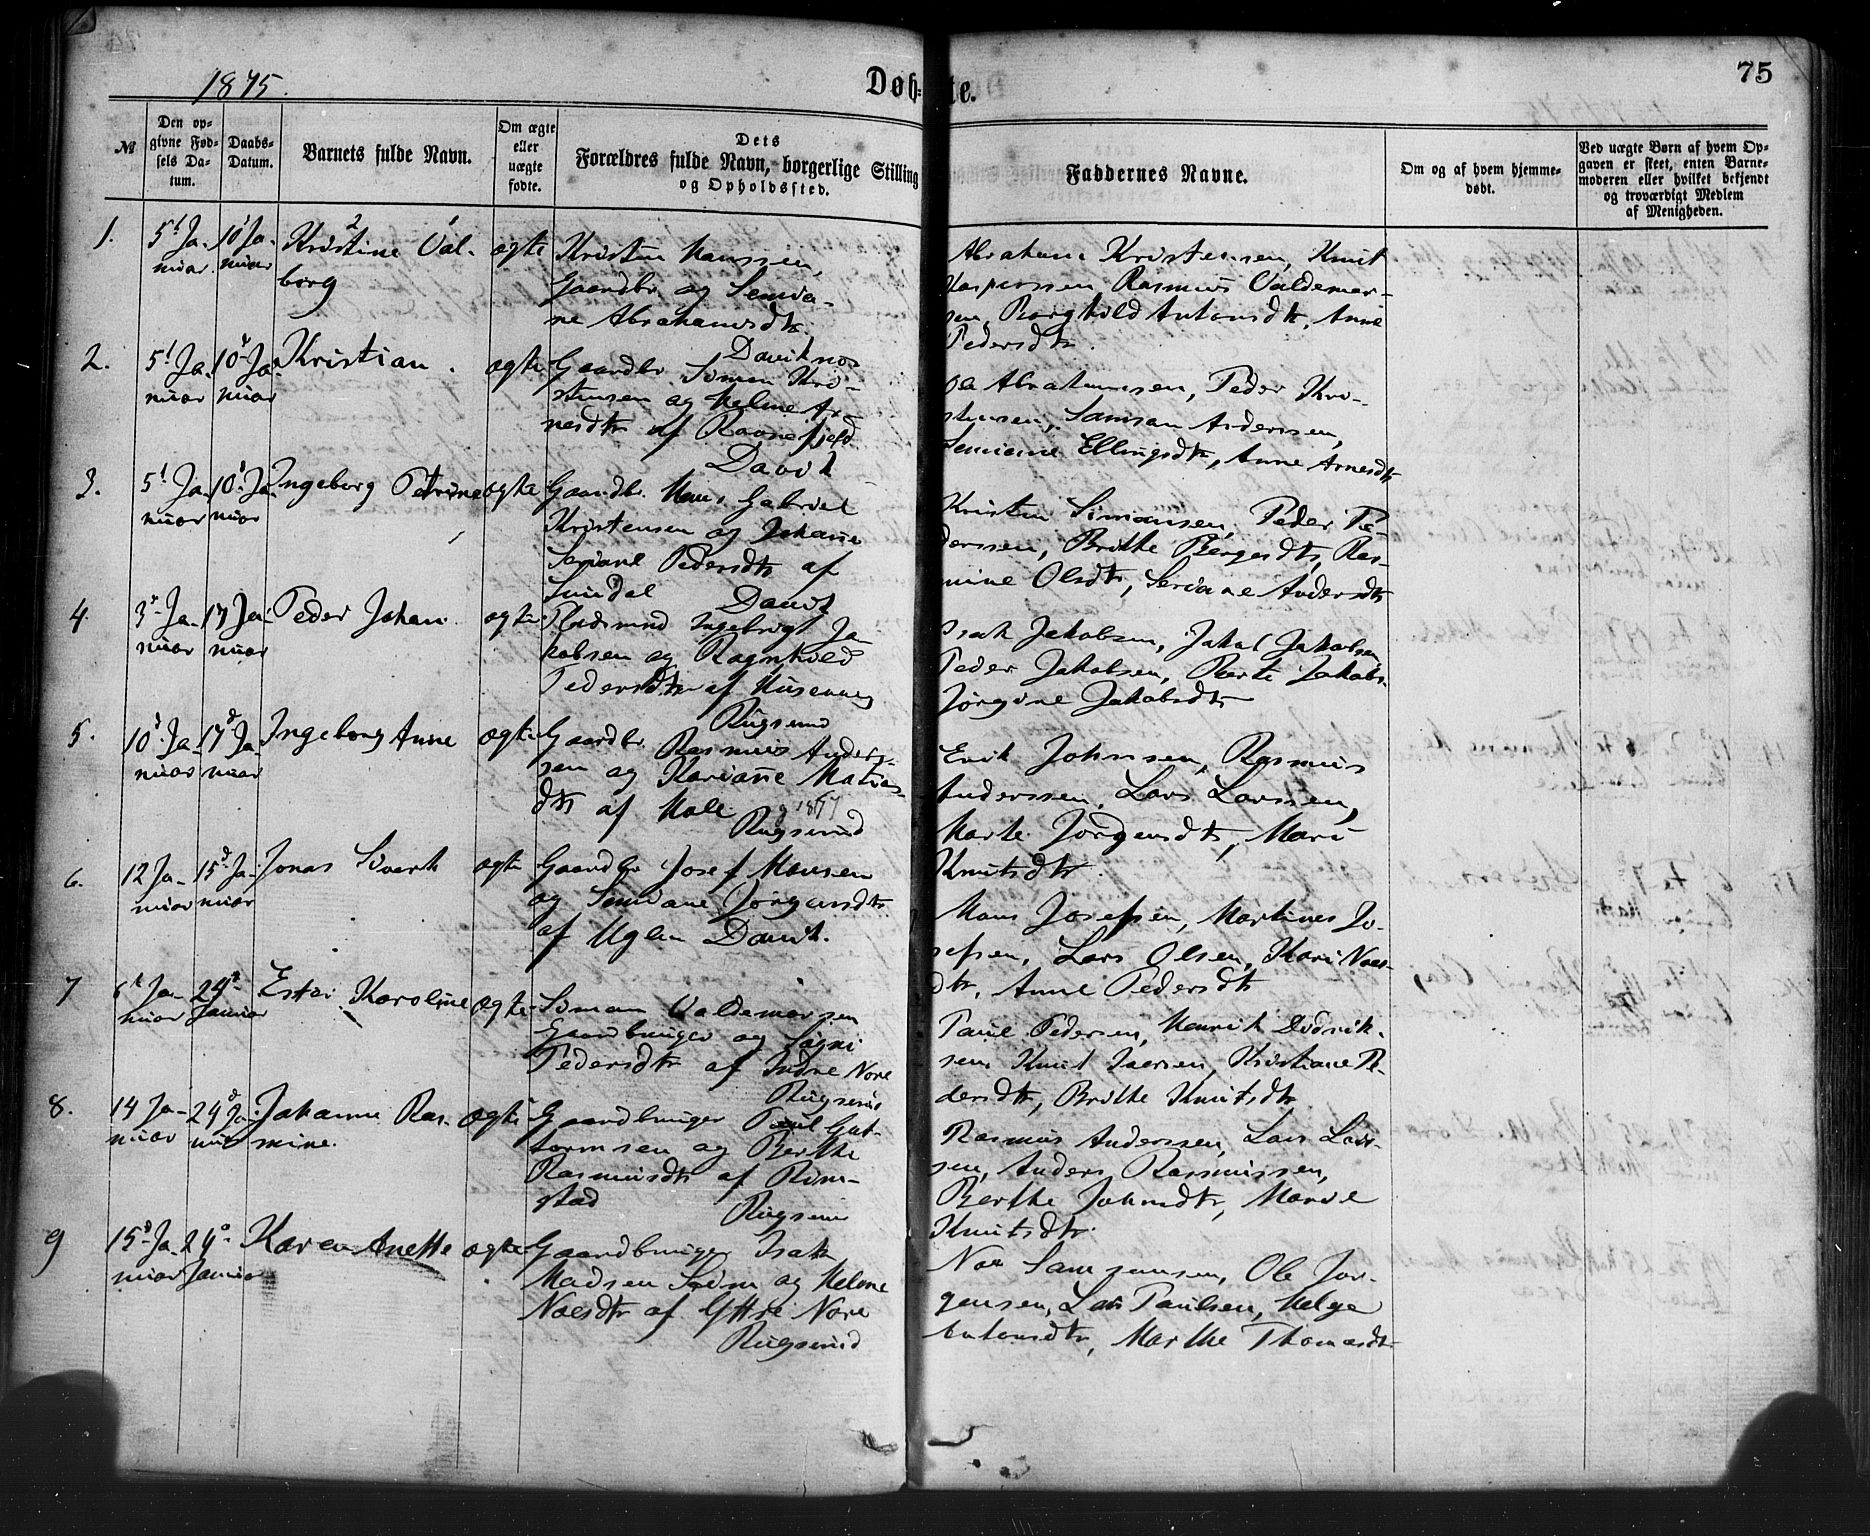 1875.
Døb-te.
75
№
Den opgivne Fødsels Datum.
Daabs-Datum.
Barnets fulde Navn.
Om ægte eller uægte fødte.
Dets Forældres fulde Navn, borgerlige Stilling og Opholdssted.
Faddernes Navne.
Om og af hvem hjemmedøbt.
Ved uægte Børn af hvem Opgaven er skeet, enten Barnemoderen eller hvilket bekjendt og troværdigt Medlem af Menigheden.
1.
5 Januar
10 Januar
Kristine Valborg
ægte
Kristen Hanssen,
Gaardbr og
ne Abrahamsdtr.
Abraham Kristensen, Knut
Kasperssen Rasmus Valdemar-
sen, Borghild Antonsdtr, Anne
Pedersdtr.
2.
5 Januar
10 Januar
Kristian.
ægte
Gaardbr. Simon Kri-
stensen og Helene Ar-
nesdtr af
Davik
Ole Abrahamssen, Peder Kri-
stensen, Samson Anderssen,
Ellingsdtr, Anne Arnesdtr
3.
5 Januar
10 Januar
Ingeborg Petrine
ægte
Gaardbr. Hans Gabriel
Kristensen og Johanne
Seriane Pedersdtr af
Davik
Kristen Simonsen, Peder Pe-
derssen, Brithe Børgesdtr, Ras-
mine Olsdtr, Seriane Andersdtr
4.
3 Januar
17 Januar
Peder Johan.
ægte
Ingebrigt Ja-
kobsen og Ragnhild
Pedersdtr af
Rugsund
Isak Jakobsen, Jakob Jakobsen
Peder Jakobsen, Berte Jakobs.
Jørgine Jakobsdtr
5.
10 Januar
17 Januar
Ingeborg Anne
ægte
Gaardbr. Rasmus Anders-
sen og Karianne Matias-
dtr af Hole
Rugsund
Erik Johnsen, Rasmus
Anderssen, Lars Larssen,
Marte Jørgensdtr, Mari
Knutsdtr.
6.
12 Januar
15 Januar
Jonas Sivert
ægte
Gaardbr Josef Hansen
og Jørgensdtr
af Davik.
Hans Josefsen, Martines Jo-
sefsen, Lars Olsen, Kari Noes-
dtr, Anne Pedersdtr
7
6 Januar
24 Januar
Ester Karoline
ægte
Simon Valdemarsen
Gaardbruger og Signi
Pedersdtr af Indre Nore
Rugsund
Paul Pedersen, Henrik Didrik-
sen Knut Iversen, Kristiane Pe-
dersdtr, Brithe Knutsdtr
8.
14 Januar
24 Januar
Johanne Rasmine.
ægte
Gaardbruger Paul Gut-
tormsen og Berthe
Rasmusdtr af Rim-
stad
Rugsund
Rasmus Anderssen, Lars Lars-
sen, Anders Rasmussen,
Berthe Johnsdtr, Marie
Knutsdtr.
9
15 Januar
24 Januar
Karen Anette
ægte
Gaardbruger Isak
Madsen og Helene
Noesdtr af Ytre Nore
Rugsund
Noe Samsonsen, Ole Jør-
gensen, Lars Paulsen, Helge
Antonsdtr, Marthe Thomasdtr